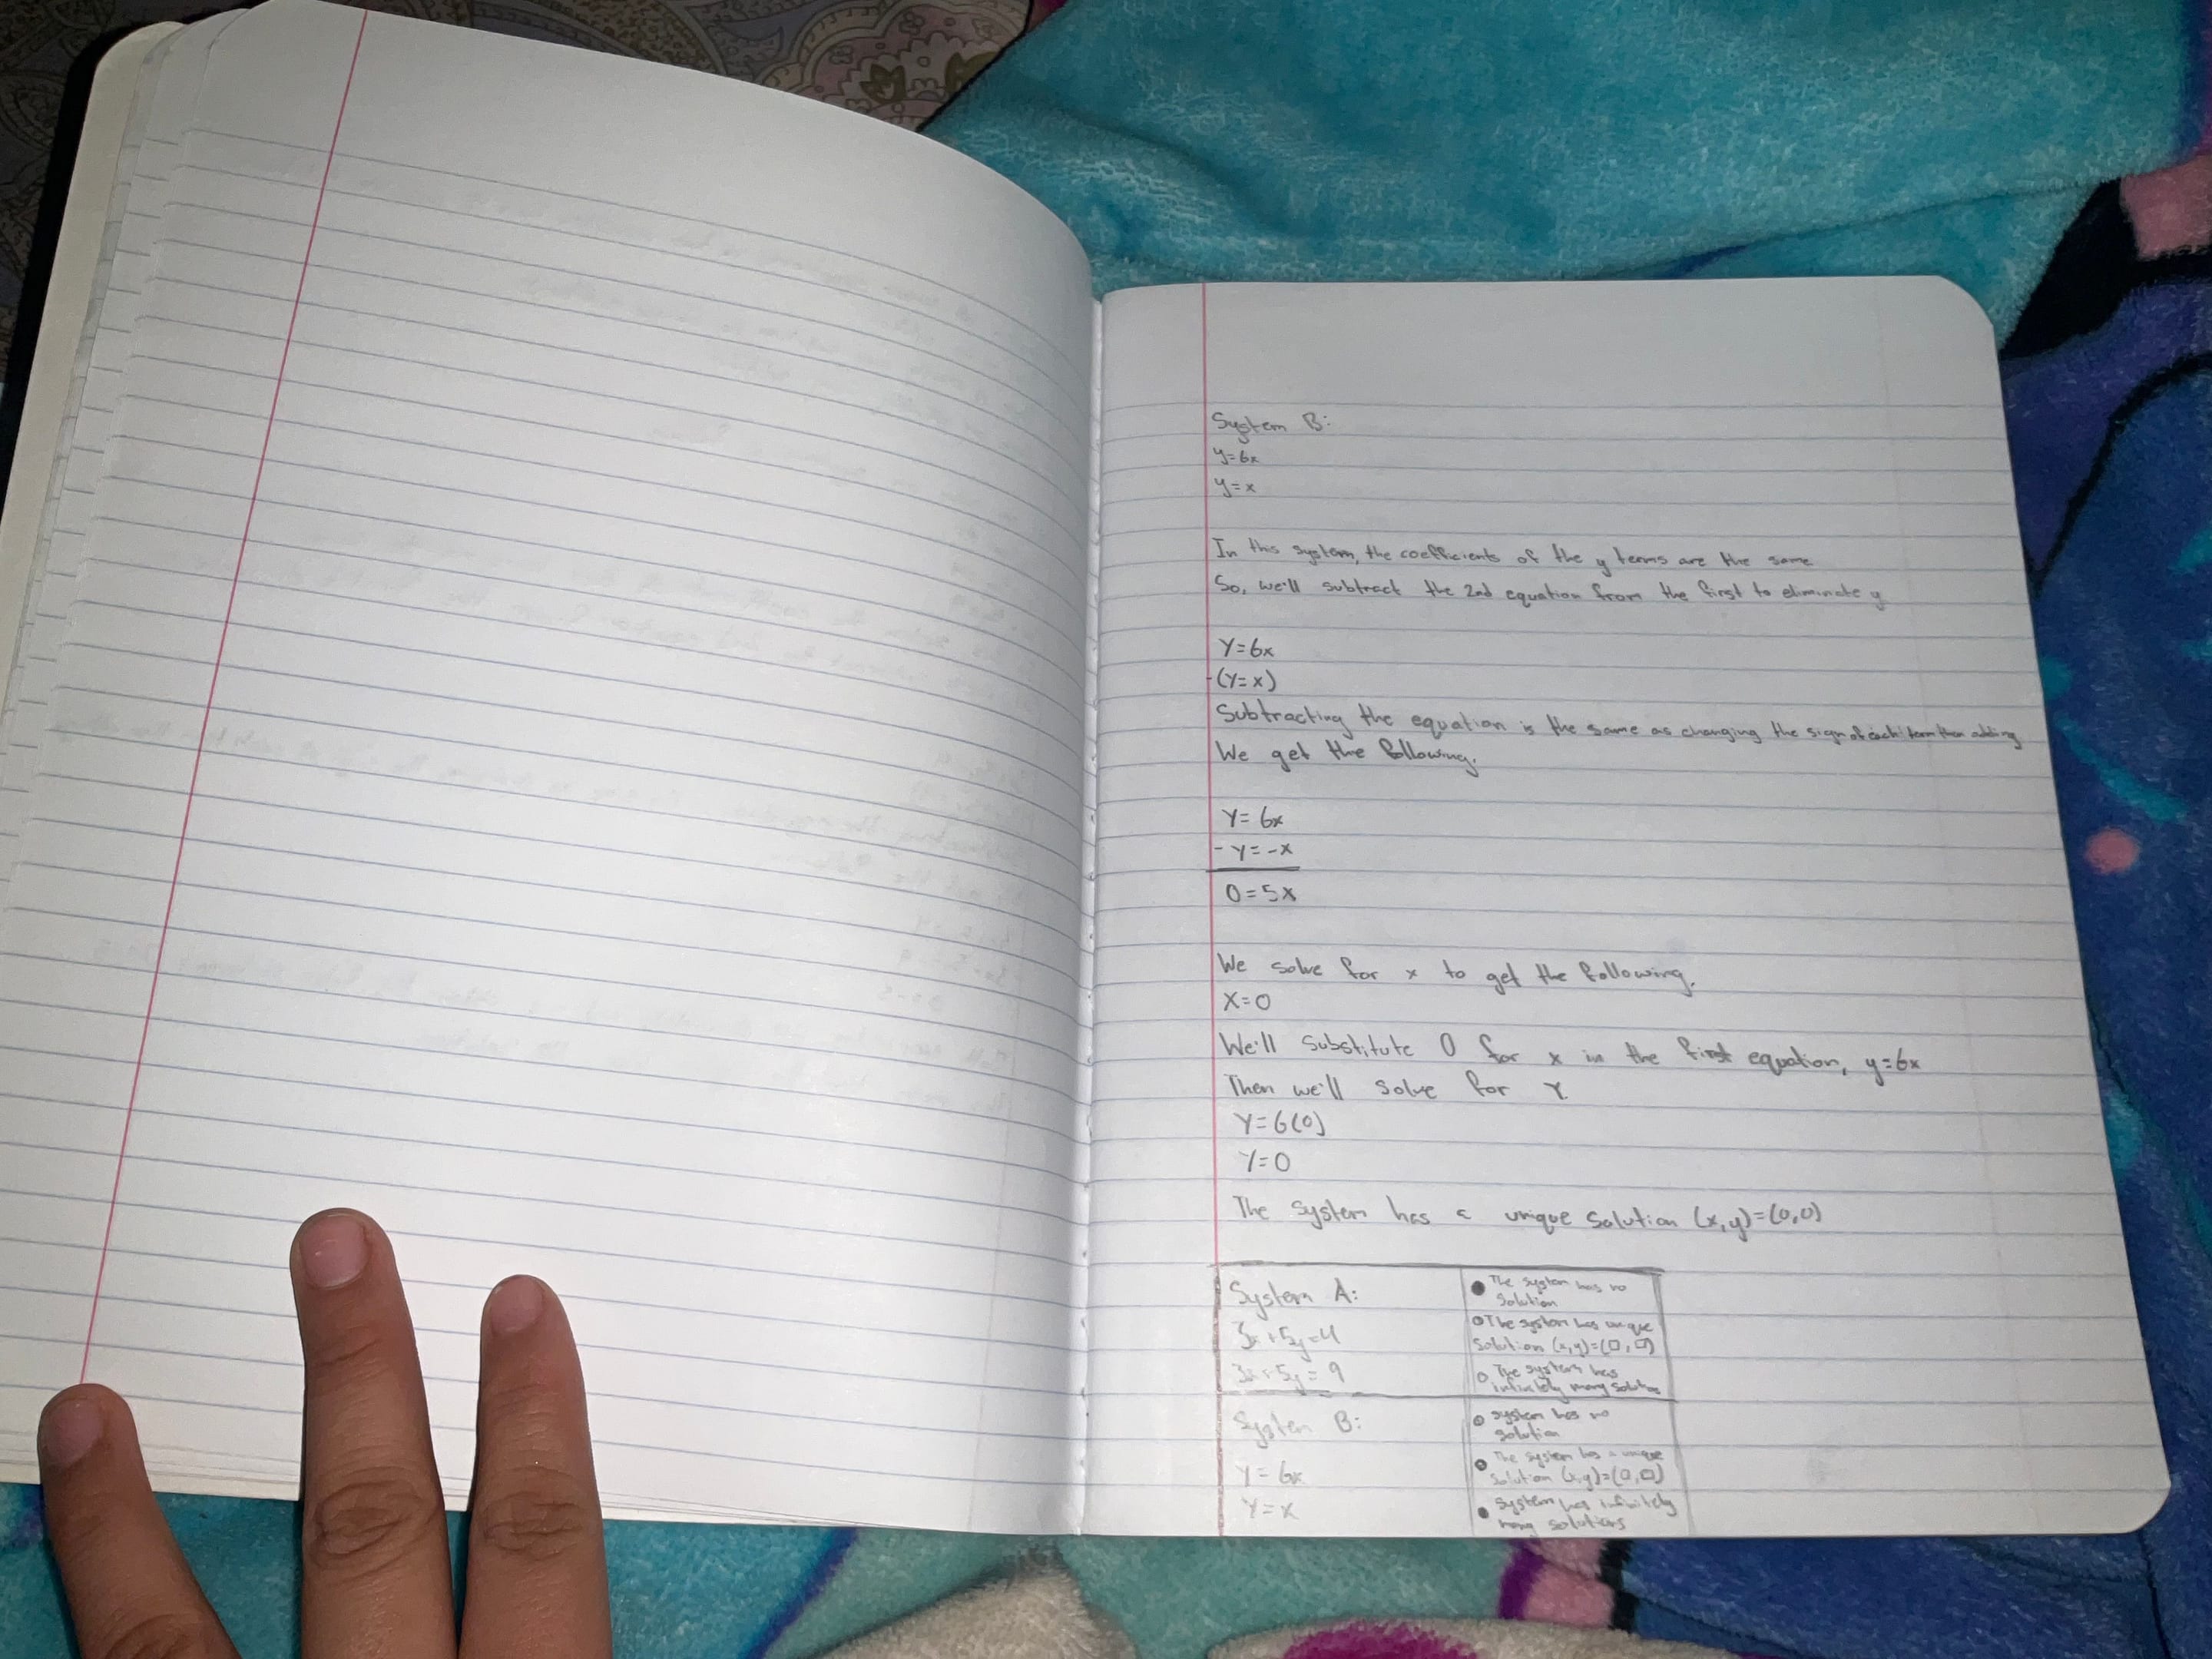 System B:
y=6x
y=x
In this system, the coefficients of the y terms are the same
So, we'll subtract the 2nd equation from the first to eliminate y
Y=6x
-(Y=x)
Subtracting the equation is the same as changing the sign of each term then adding
We get the following.
Y=6x
-Y=-x
0=5x
We solve for x to get the following.
X=0
We'll substitute 0 for x in the first equation, y=6x
Then we'll solve for Y
Y=6(0)
Y=0
The system has a unique solution (x,y)=(0,0)
System A:
3x+5y=4
3x+5y=9
● The system has no
solution
○ The system has unique
solution (x,y)=(□,□)
○ The system has
infinitely many
System B:
Y=6x
Y=x
○ system has no
solution
○ The system has a unique
solution (x,y)=(□,□)
● system has infinitely
many solutions